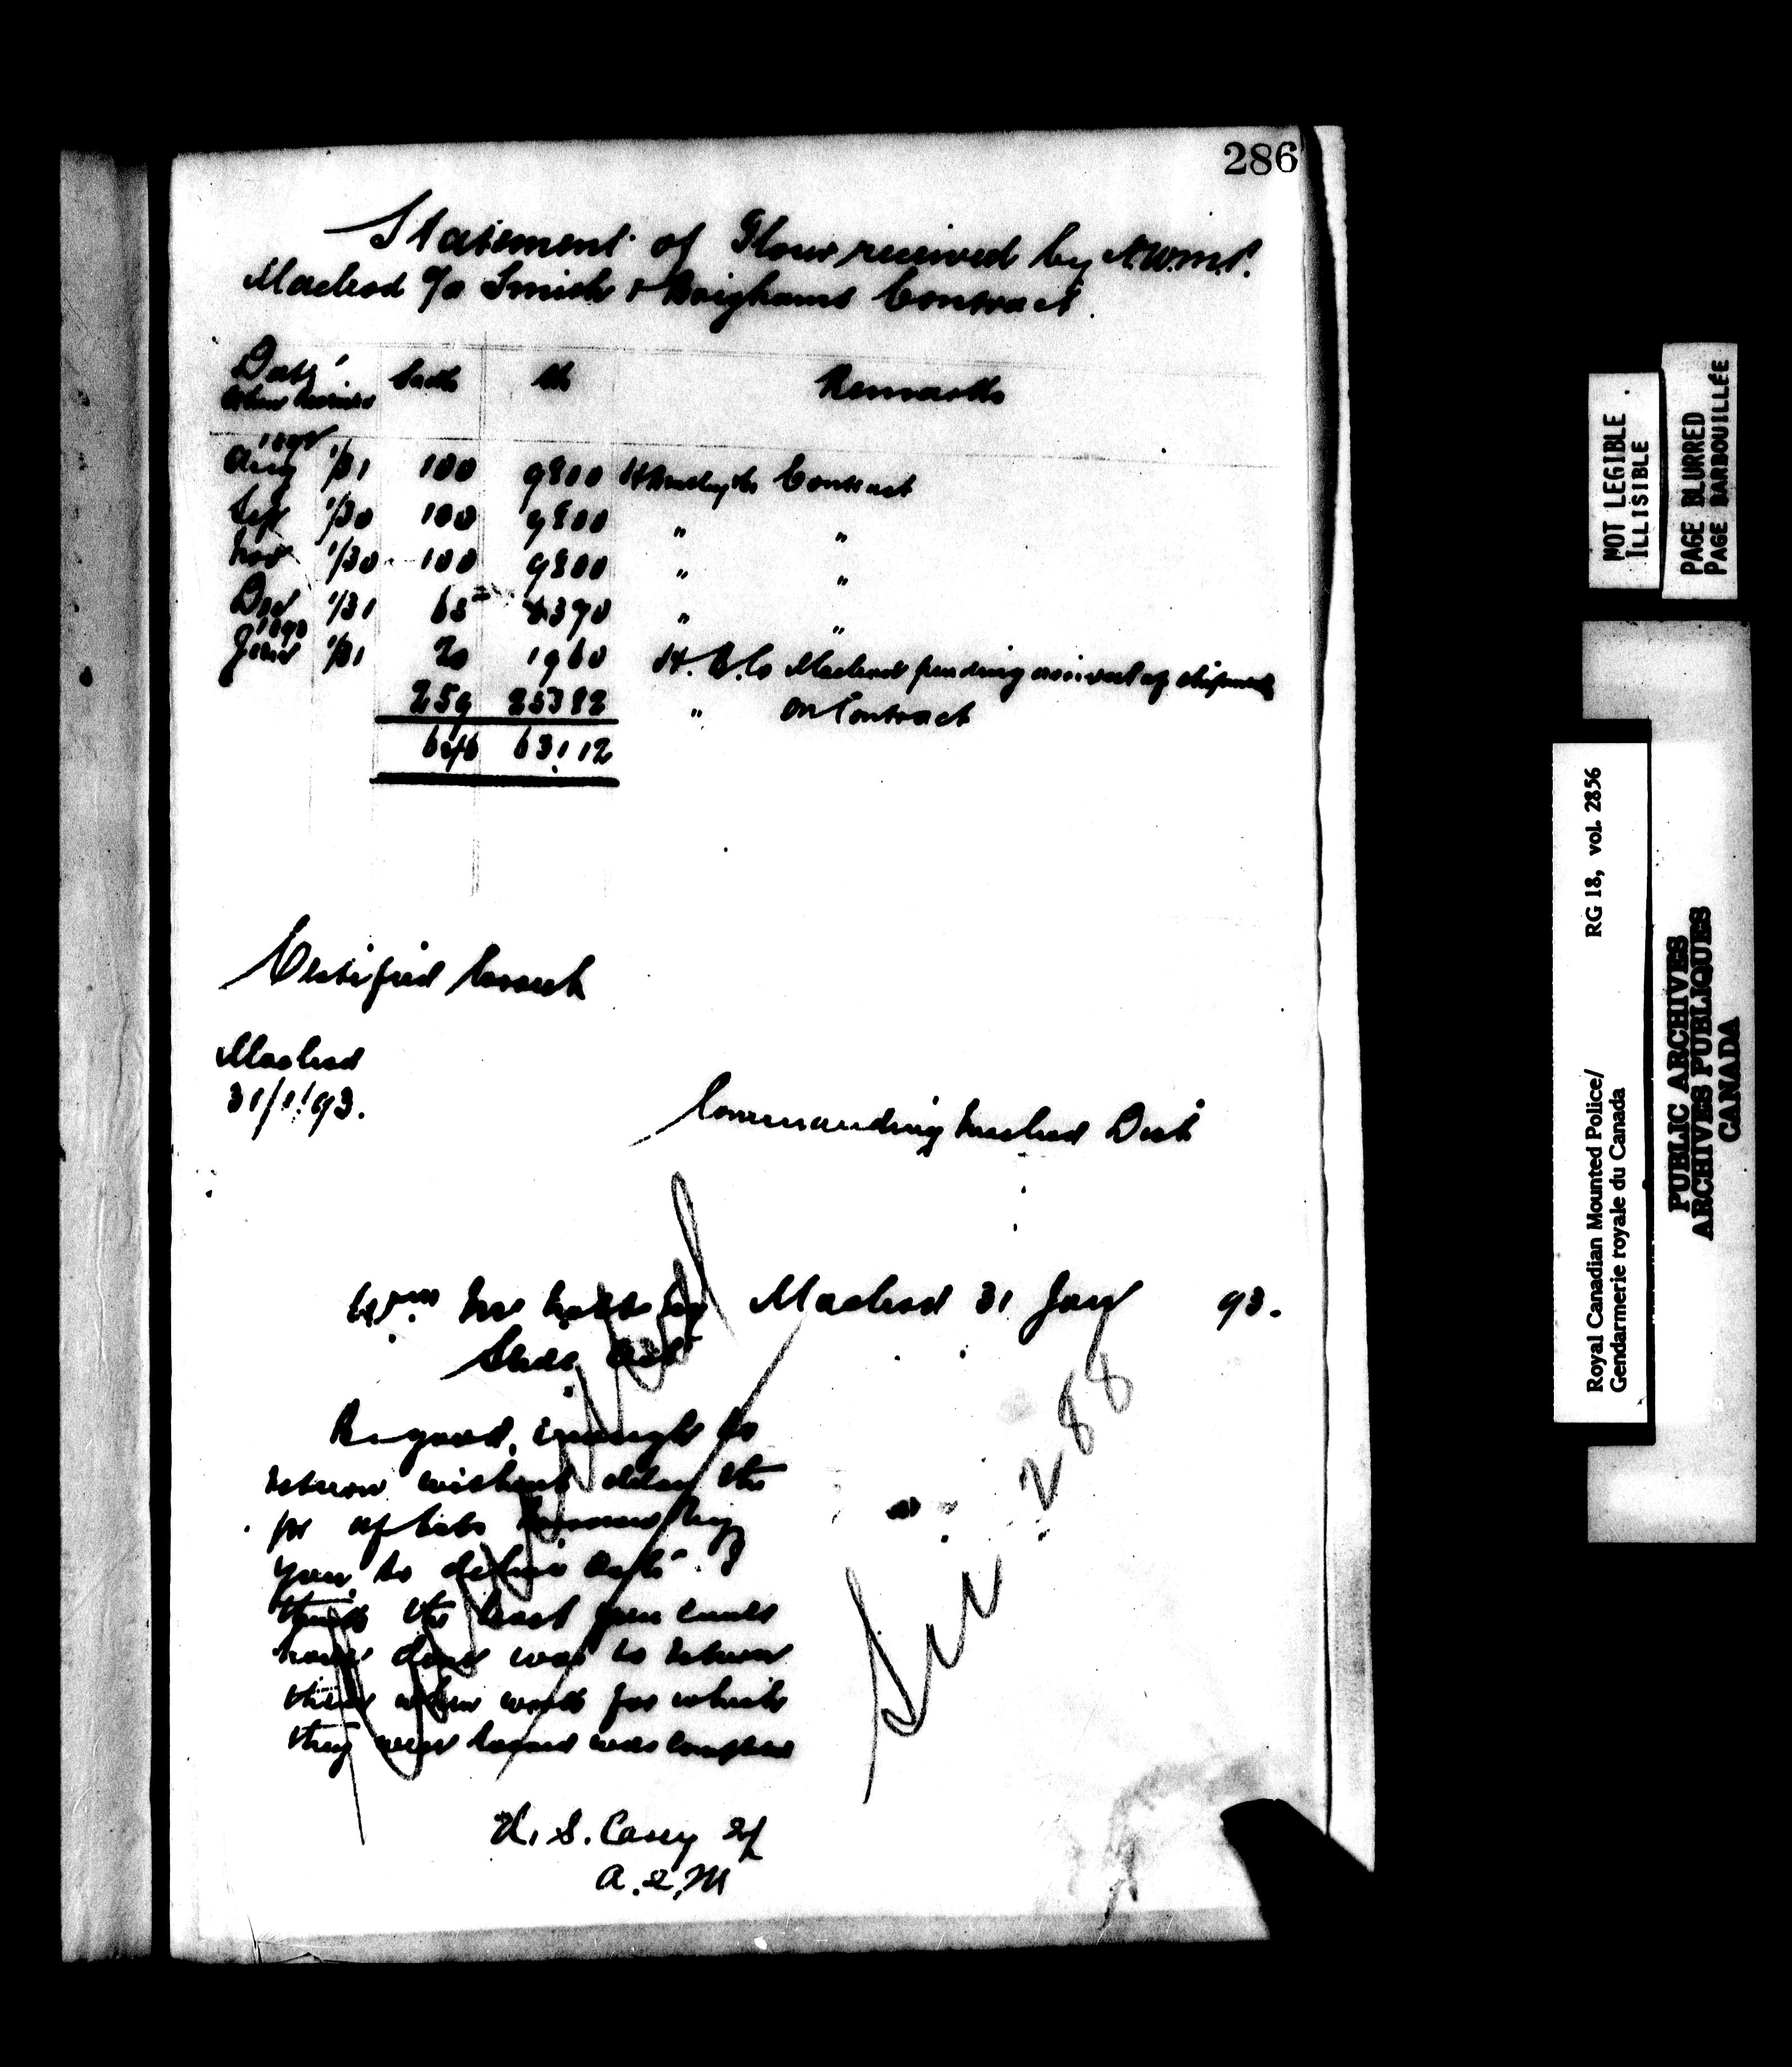 286
Statement of Flour received by N.W.M.P.
Macleod a/c Smith & Brighams Contract.
Date Sacks lbs Remarks
When
1892
Aug 1/31 100 9800 Contract
Sep 1/30 100 9800 " "
Nov 1/30 100 9800 " "
Dec 1/31 65 " "
1893
Jany 1/31 20 1960 H. B. Co Macleod pending arrival of shipment
259 25382 " on Contract
63112
Certified Correct
Macleod
31/1/93.
Commanding Macleod Dist
Macleod 31 Jany 93.
Be good enough to
return without delay the
pr of
you to
the least you could
have done was to return
them when work for which
they were loaned was completed
See 288
H. S. Casey
A. Q. M
NOT LEGIBLE
ILLISIBLE
PAGE BLURRED
PAGE BARBOUILLÉE
Royal Canadian Mounted Police/ RG 18, vol. 2856
Gendarmerie royale du Canada
PUBLIC ARCHIVES
ARCHIVES PUBLIQUES
CANADA